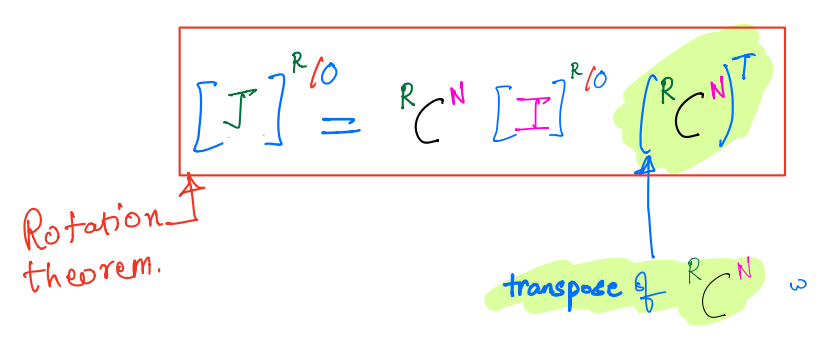 [J]^{R/O} = ^{R}C^{N} [I]^{R/O} (^{R}C^{N})^{T}
Rotation
theorem.
transpose of ^{R}C^{N}